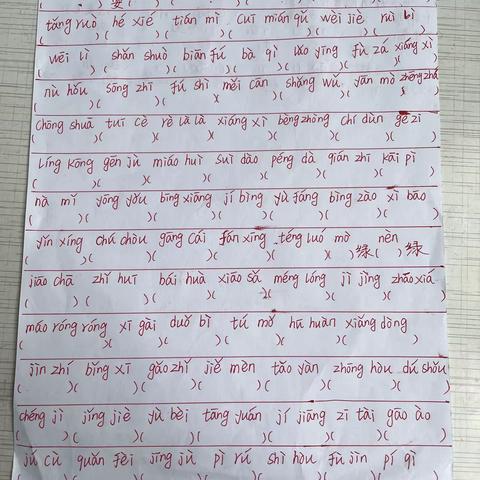 tǎng ruò hé xié tián mì cuī mián qǔ wèi jiè ruì lì
wēi lì shǎn shuò biān fú bà qì lǎo yīng fù zá xiáng xì
nù hǒu sōng zhī fú shì měi cān shǎng wǔ yān mò zhēng zhá
chōng shuā tuī cè rè là là xiáng xì bèng zhòng chí dùn gē zi
líng kōng gēn jù miáo huì suì dào péng dà qián zhī kāi pì
nà mǐ yōng yǒu bīng xiāng jí bìng yù fáng bìng zào xì bāo
yǐn xíng chú chòu gāng cái fán xīng téng luó mò 绿 nèn 绿
jiāo chā zhǐ huī bái huà xiāo sǎ méng lóng jì jìng zhāo xiá
máo róng róng xī gài duǒ bì tú mǒ hū huàn xiǎng dòng
jìn zhí bīng xī gǎo zhǐ jiě mèn tǎo yàn zhōng hòu dú shǒu
chéng jì jǐng jiè yù bèi tāng yuán jí jiāng zī tài gāo ào
jú cù quǎn fèi jīng jù pì rú shì hòu fù jìn pí qì